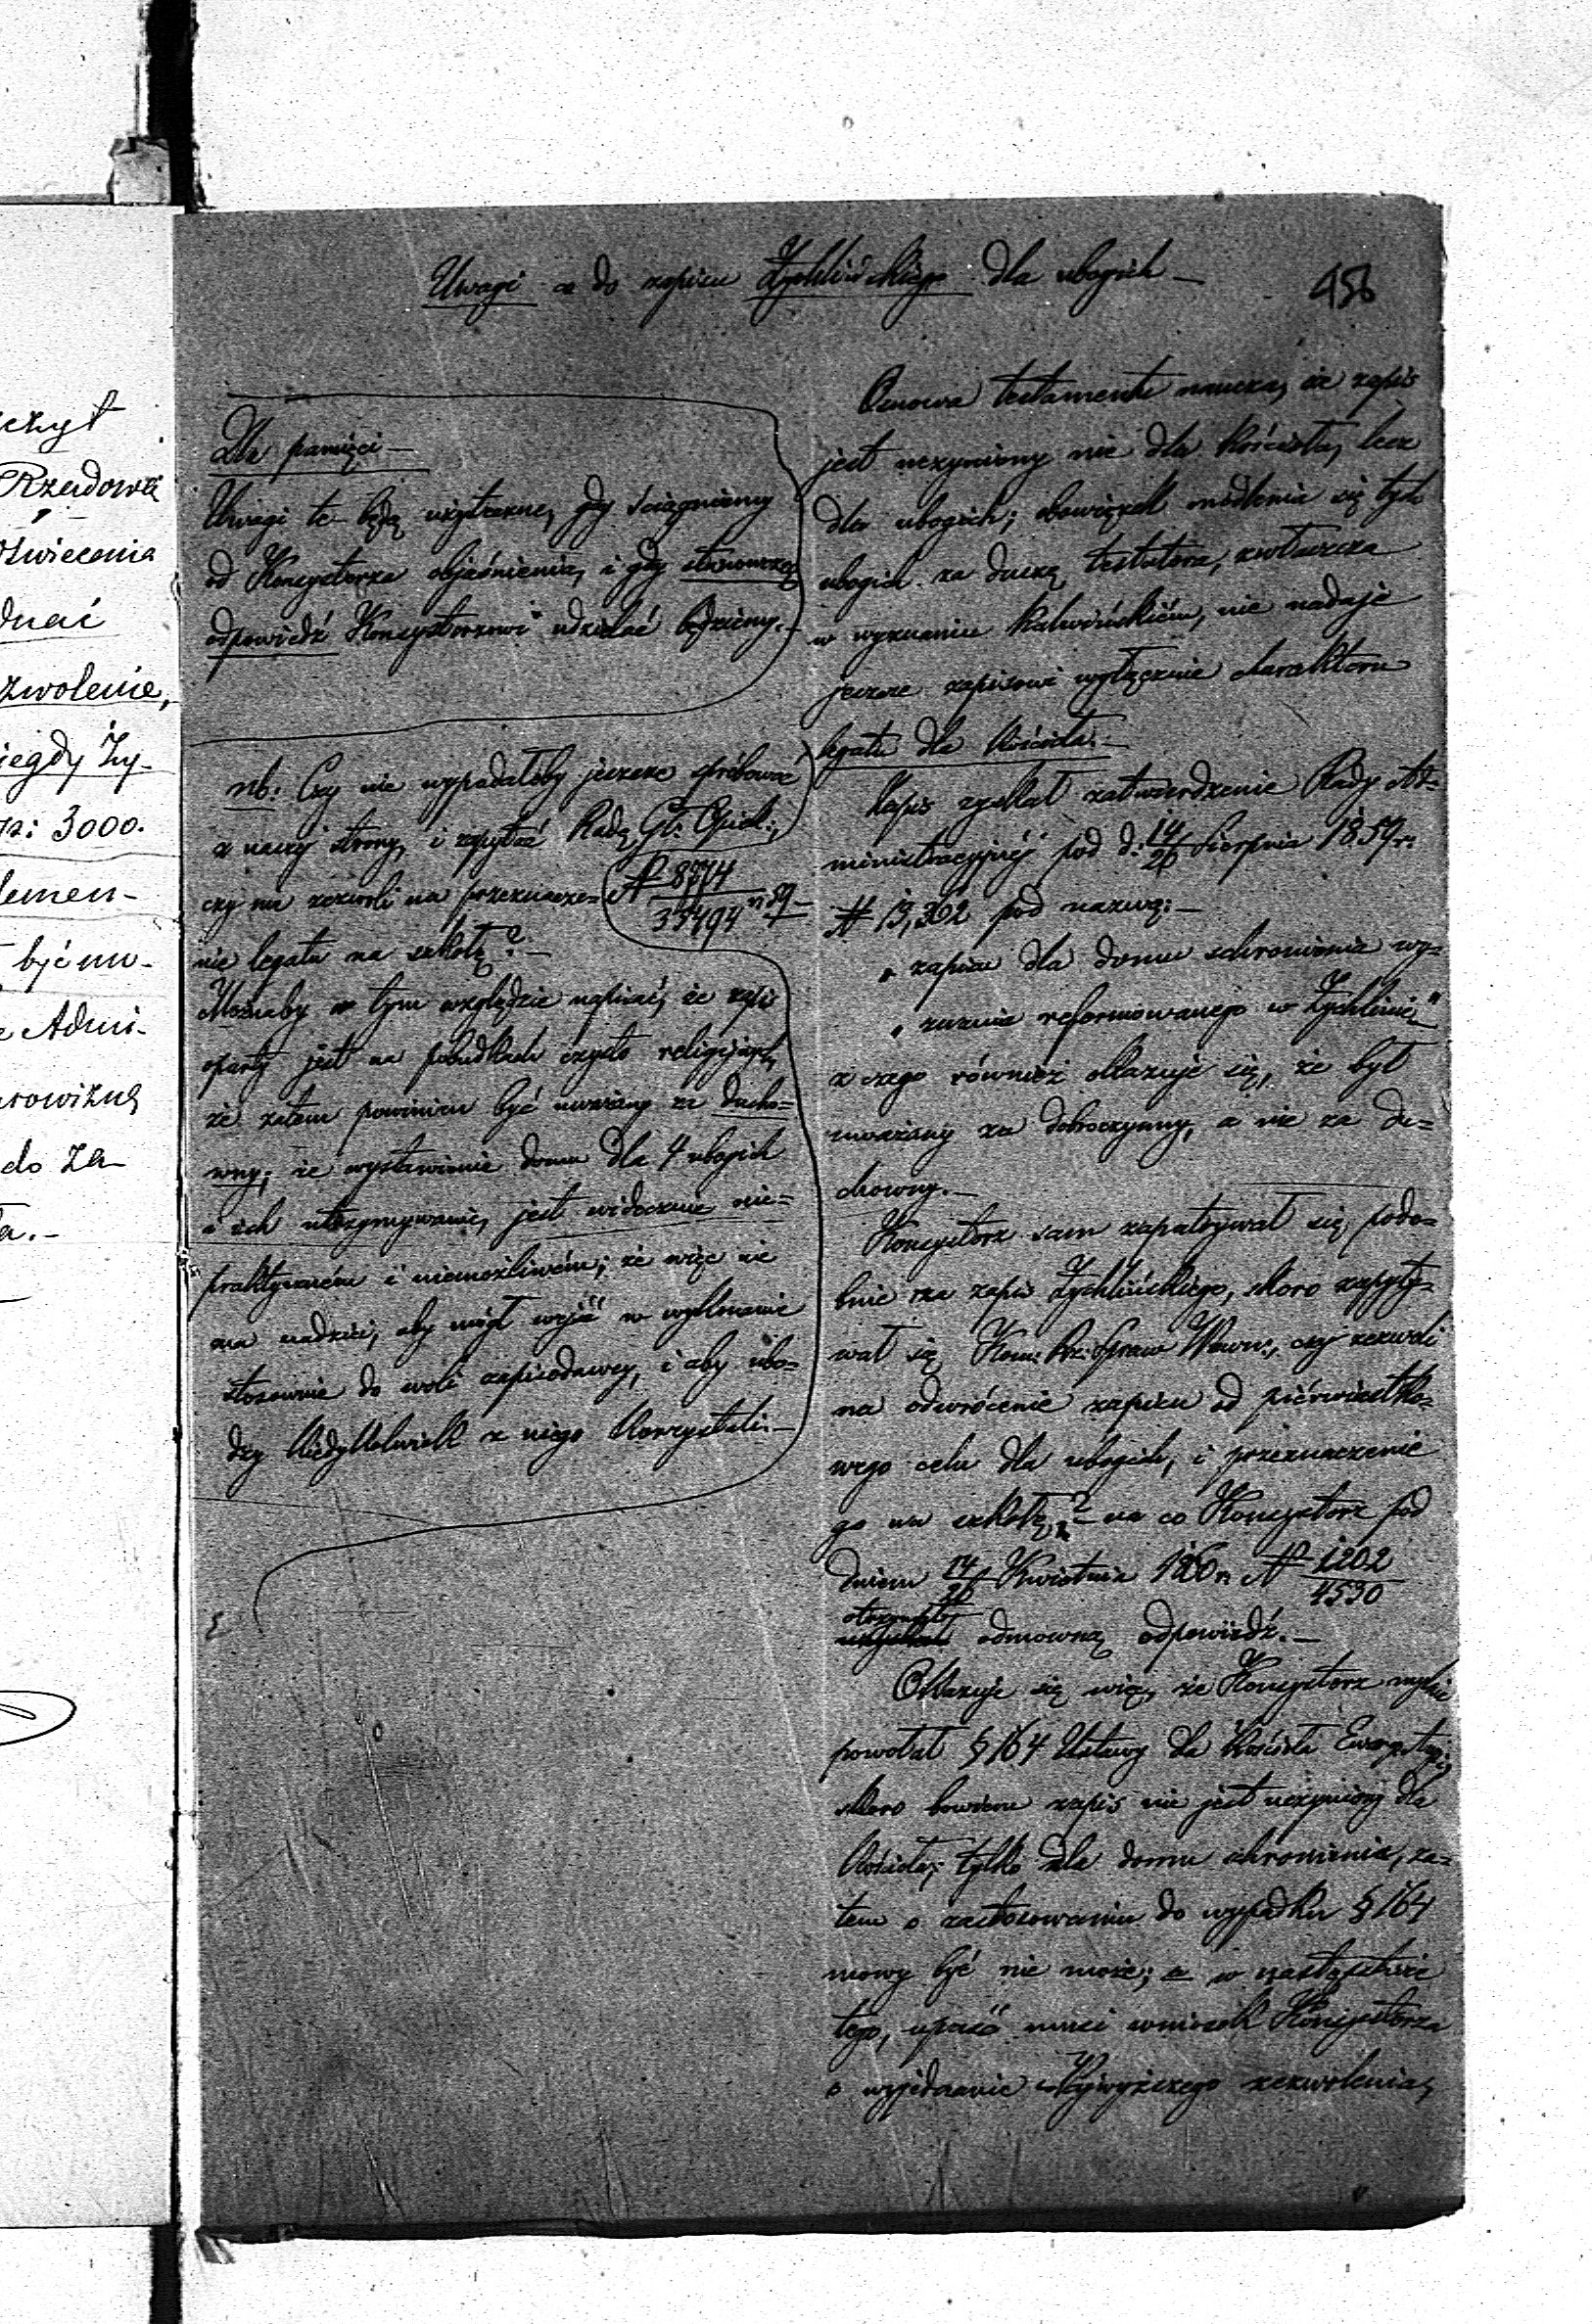 czyt
Rządowa
Oświecenia
dnać
zwolenie,
iegdy Ży-
rs: 3000.
lemen-
być mu-
Admi-
arowizną
do za-
ła.-
Uwagi co do zapisu Żychlińskiego dla ubogich —
456
Dla pamięci —
Uwagi te będą użyteczne, gdy ściągniemy
od Konsystorza objaśnienia, i gdy stanowczą
odpowiedź Konsystorzowi udzielać będziemy. —
nb: Czy nie wypadałoby jeszcze spróbować
z naszej strony, i zapytać Radę Gł: Opiek:,
czy nie zezwoli na przeznacze= (N 8774/35494 59 —
nie legatu na szkołę? —
Możnaby w tym względzie napisać, że zapis
oparty jest na pobudkach czysto religijnych,
że zatem powinien być uważany za ducho=
wny; że wystawienie domu dla 4 ubogich
i ich utrzymywanie, jest widocznie nie=
praktyczném i niemożliwém; że więc nie
ma nadziei, aby mógł wejść w wykonanie
stosownie do woli zapisodawcy, i aby ubo=
dzy kiedykolwiek z niego korzystali. —
Osnowa testamentu naucza, że zapis
jest uczyniony nie dla Kościoła, lecz
dla ubogich; obowiązek modlenia się tych
ubogich za duszę testatora, zwłaszcza
w wyznaniu Kalwińskiém, nie nadaje
jeszcze zapisowi wyłącznie charakteru
legatu dla Kościoła. —
Zapis zyskał zatwierdzenie Rady Ad=
ministracyjnéj pod d: 14/26 Sierpnia 1859 r:
N 13,302 pod nazwą: —
„ zapisu dla domu schronienia wy=
„ znania reformowanego w Żychlinie"
z czego również okazuje się, że był
uważany za dobroczynny, a nie za du=
chowny. —
Konsystorz sam zapatrywał się podo=
bnie na zapis Żychlińskiego, skoro zapyty=
wał się Kom: Rz: Spraw Wewn:, czy zezwoli
na odwrócenie zapisu od piérwiastko=
wego celu dla ubogich, i przeznaczenie
go na szkołę? — na co Konsystorz pod
dniem 14/26 Kwietnia 1860 r. N 1202/4530
otrzymał odmowną odpowiedź. —
Okazuje się więc, że Konsystorz mylnie
powołał § 164 Ustawy dla Kościoła
skoro bowiem zapis nie jest uczyniony dla
Kościoła, tylko dla domu schronienia, za=
tem o zastosowaniu do wypadku § 164
mowy być nie może; a w następstwie
tego, upaść musi wniosek Konsystorza
o wyjednanie Najwyższego zezwolenia,